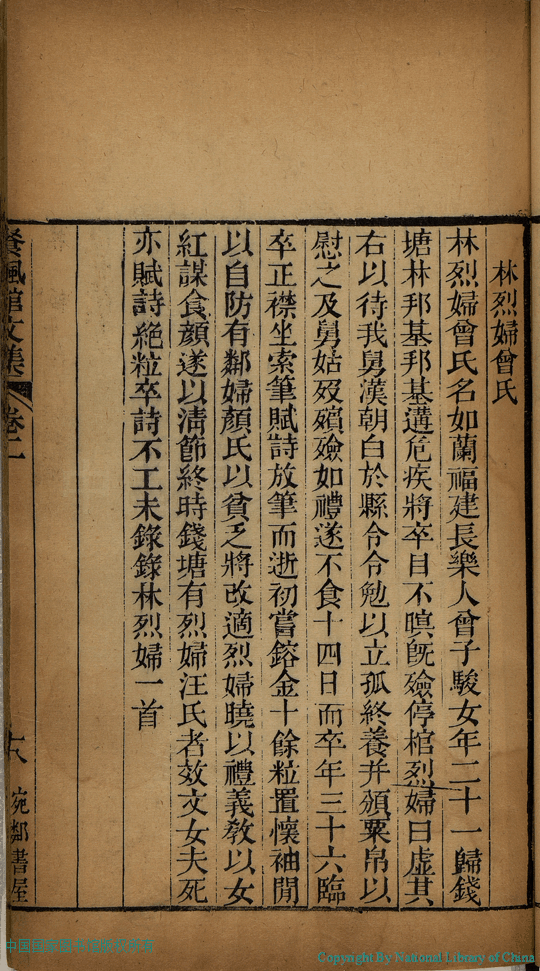 林烈婦曾氏
林烈婦曾氏名如蘭福建長樂人曾子駿女年二十一歸錢
塘林邦基邦基遘危疾將卒目不暝旣殮停棺烈婦曰虛其
右以待我舅漢朝白於縣令令勉以立孤終養并頒粟帛以
慰之及舅姑歿殯殮如禮遂不食十四日而卒年三十六臨
卒正襟坐索筆賦詩放筆而逝初嘗鎔金十餘粒置懷袖閒
以自防有鄰婦顏氏以貧乏將改適烈婦曉以禮義敎以女
紅謀食顏遂以淸節終時錢塘有烈婦汪氏者效文女夫死
亦賦詩絶粒卒詩不工未錄錄林烈婦一首
養風館文集 卷二
宛鄰書屋
Copyright By National Library of China